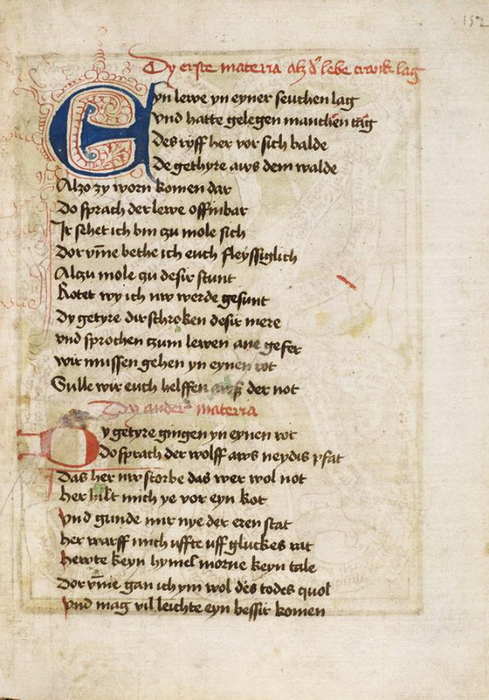 152
Dy erste materia alz d' lebe crank lag
Eyn lewe yn eyner seuchen lag
Vnd hatte gelegen manchen tag
Des ryff her vor sich balde
De gethyre aws dem walde
Alzo zy worn komen dar
Do sprach der lewe offinbar
Ir sehet ich bin zu mole sich
Dor vm̄e bethe ich euch fleyssiglich
Alzu mole zu desir stunt
Rotet wy ich nw werde gesunt
Dy getyre dirschroken desir mere
vnd sprochen zum lewen ane gefer
wir mussen gehen yn eynen rot
Sulle wir euch helffen aws der not
Dy ander materia
Dy getyre gingen yn eynen rot
Do sprach der wolff aws neydis pfat
Das her nw storbe das wer wol not
her hilt mich ye vor eyn kot
Vnd gunde mir nye der eren stat
her warff mich uffte uff gluckes rat
hewte keyn hymel morne keyn tale
Dor vm̄e gan ich ym wol des todes quol
Vnd mag vil leichte eyn bessir komen